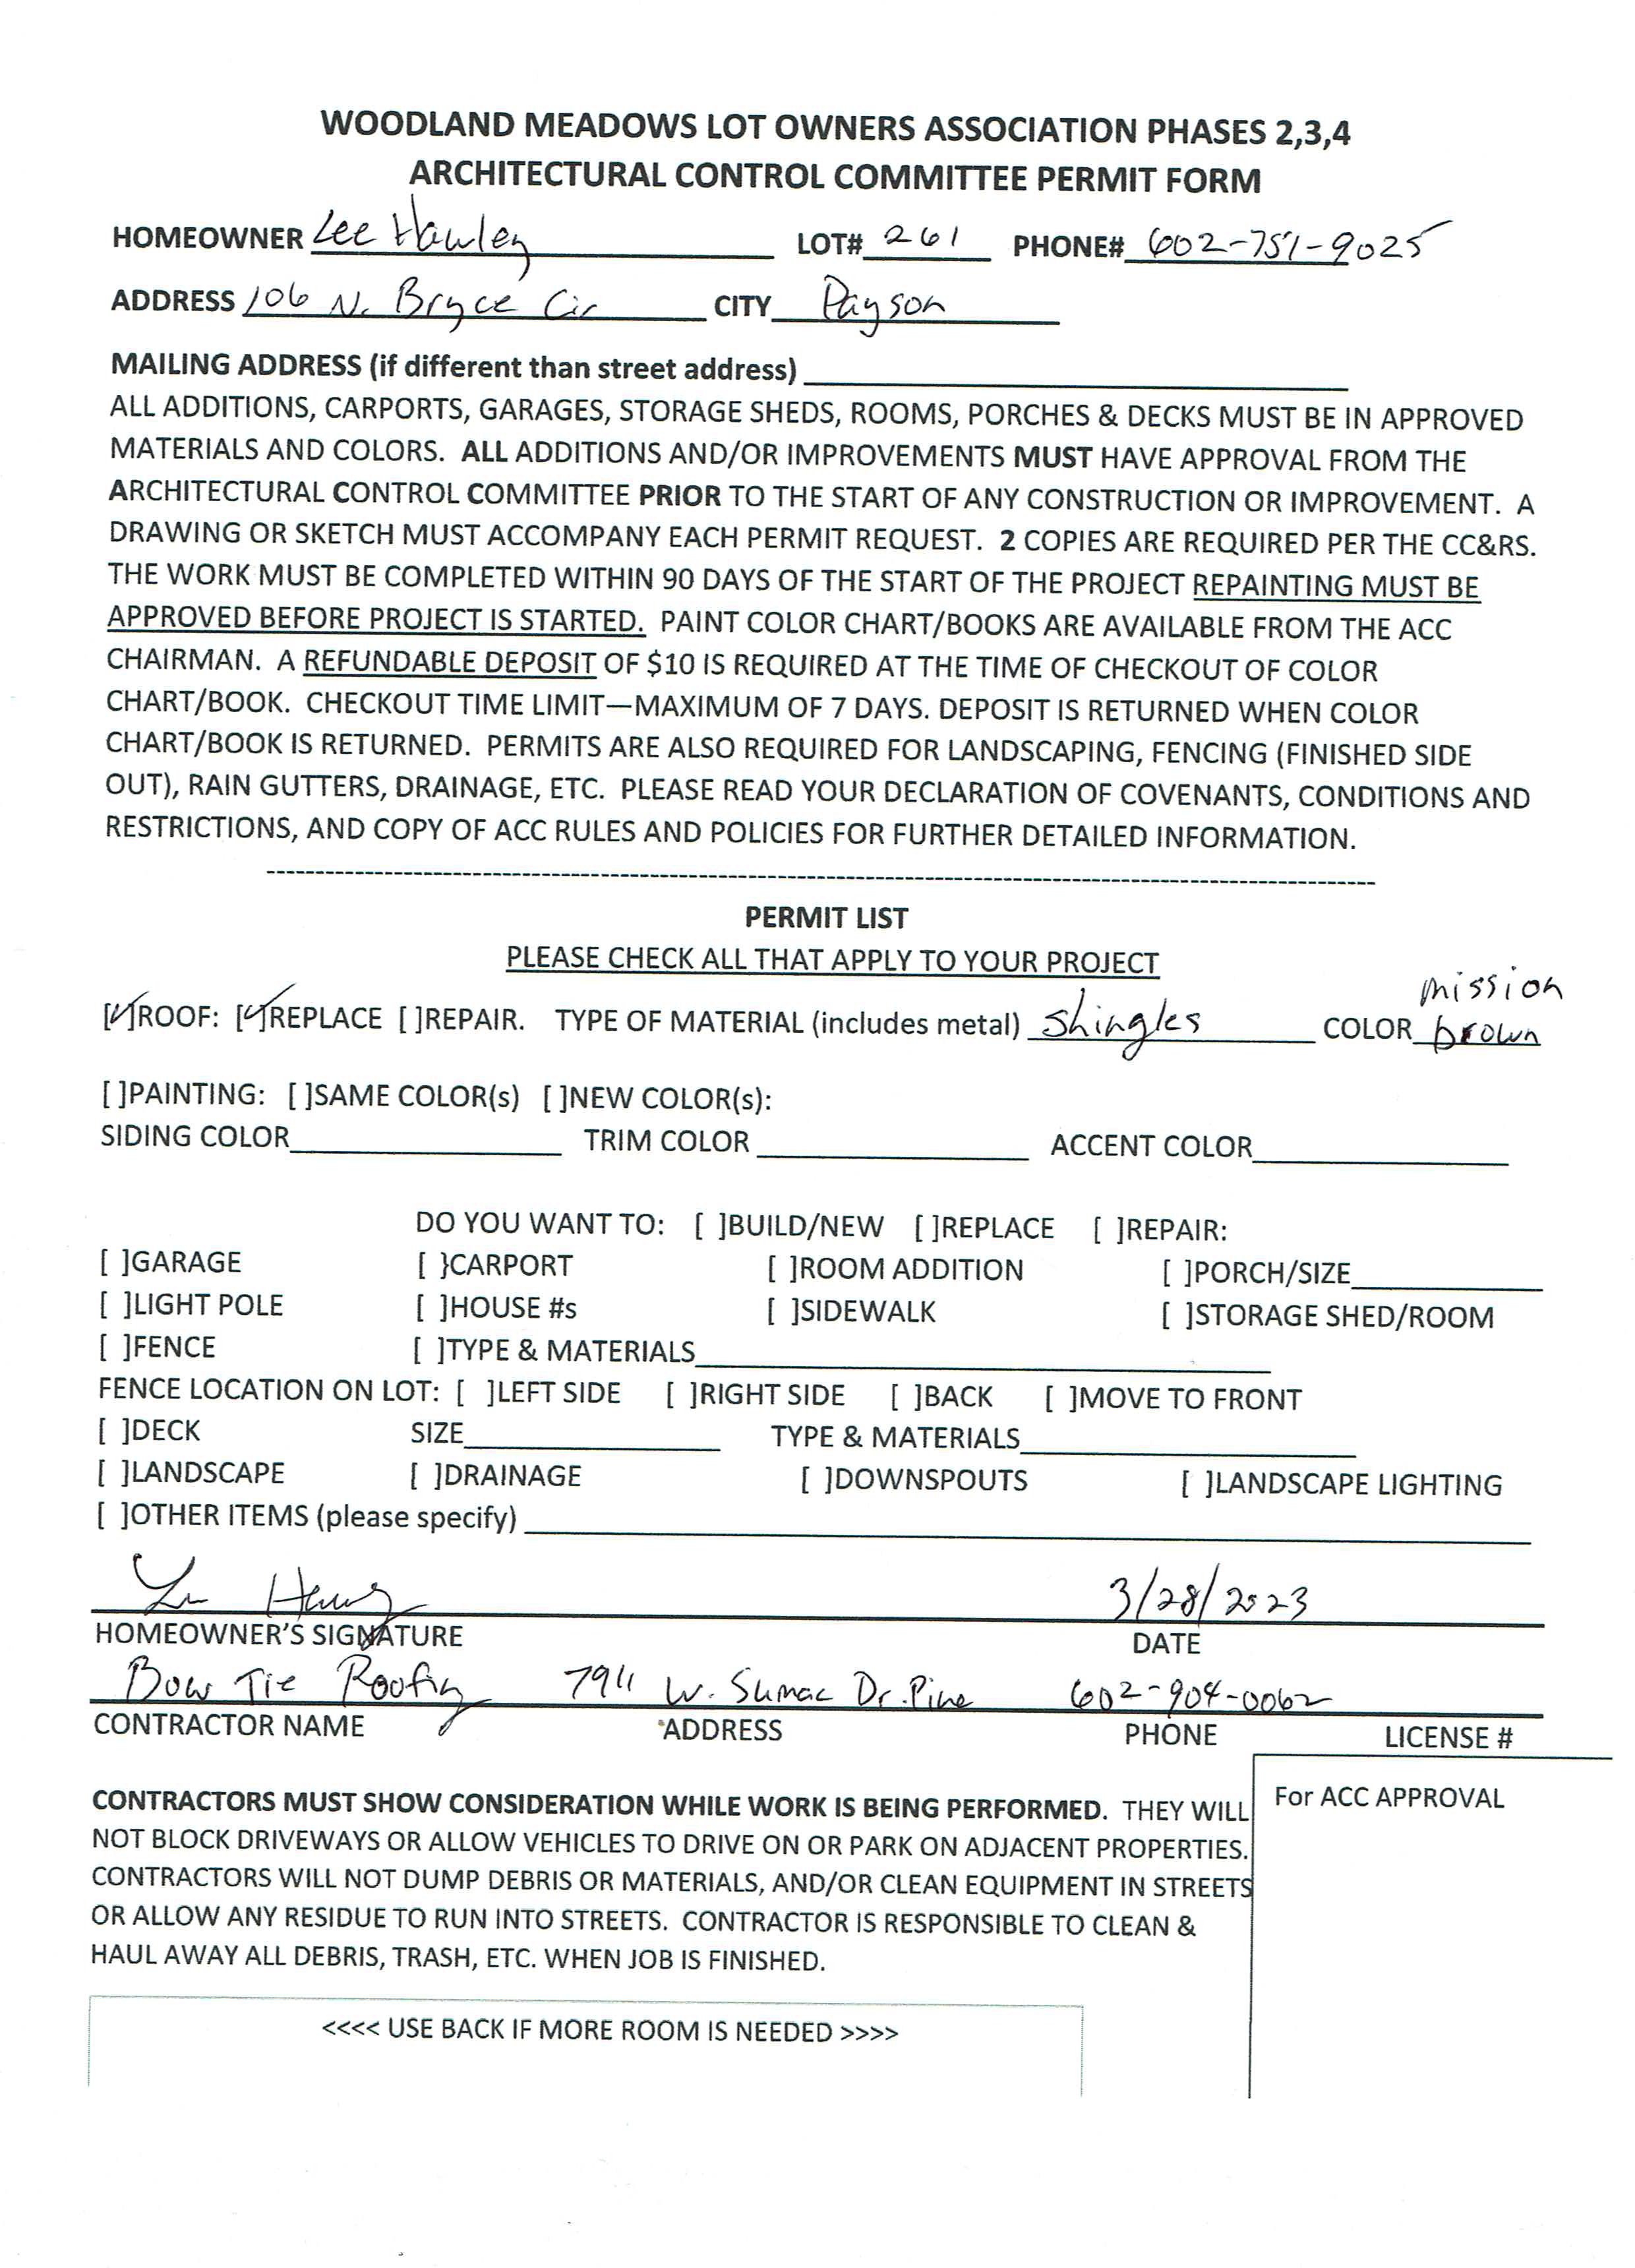 WOODLAND MEADOWS LOT OWNERS ASSOCIATION PHASES 2,3,4
ARCHITECTURAL CONTROL COMMITTEE PERMIT FORM
HOMEOWNER Lee Hawley LOT# 261 PHONE# 602-751-9025
ADDRESS 106 N. Bryce Cir CITY Payson
MAILING ADDRESS (if different than street address)
ALL ADDITIONS, CARPORTS, GARAGES, STORAGE SHEDS, ROOMS, PORCHES & DECKS MUST BE IN APPROVED
MATERIALS AND COLORS. ALL ADDITIONS AND/OR IMPROVEMENTS MUST HAVE APPROVAL FROM THE
ARCHITECTURAL CONTROL COMMITTEE PRIOR TO THE START OF ANY CONSTRUCTION OR IMPROVEMENT. A
DRAWING OR SKETCH MUST ACCOMPANY EACH PERMIT REQUEST. 2 COPIES ARE REQUIRED PER THE CC&RS.
THE WORK MUST BE COMPLETED WITHIN 90 DAYS OF THE START OF THE PROJECT REPAINTING MUST BE
APPROVED BEFORE PROJECT IS STARTED. PAINT COLOR CHART/BOOKS ARE AVAILABLE FROM THE ACC
CHAIRMAN. A REFUNDABLE DEPOSIT OF $10 IS REQUIRED AT THE TIME OF CHECKOUT OF COLOR
CHART/BOOK. CHECKOUT TIME LIMIT—MAXIMUM OF 7 DAYS. DEPOSIT IS RETURNED WHEN COLOR
CHART/BOOK IS RETURNED. PERMITS ARE ALSO REQUIRED FOR LANDSCAPING, FENCING (FINISHED SIDE
OUT), RAIN GUTTERS, DRAINAGE, ETC. PLEASE READ YOUR DECLARATION OF COVENANTS, CONDITIONS AND
RESTRICTIONS, AND COPY OF ACC RULES AND POLICIES FOR FURTHER DETAILED INFORMATION.
PERMIT LIST
PLEASE CHECK ALL THAT APPLY TO YOUR PROJECT
[✓]ROOF: [✓]REPLACE [ ]REPAIR. TYPE OF MATERIAL (includes metal) shingles COLOR mission brown
[ ]PAINTING: [ ]SAME COLOR(s) [ ]NEW COLOR(s):
SIDING COLOR TRIM COLOR ACCENT COLOR
DO YOU WANT TO: [ ]BUILD/NEW [ ]REPLACE [ ]REPAIR:
[ ]GARAGE [ }CARPORT [ ]ROOM ADDITION [ ]PORCH/SIZE
[ ]LIGHT POLE [ ]HOUSE #s [ ]SIDEWALK [ ]STORAGE SHED/ROOM
[ ]FENCE [ ]TYPE & MATERIALS
FENCE LOCATION ON LOT: [ ]LEFT SIDE [ ]RIGHT SIDE [ ]BACK [ ]MOVE TO FRONT
[ ]DECK SIZE TYPE & MATERIALS
[ ]LANDSCAPE [ ]DRAINAGE [ ]DOWNSPOUTS [ ]LANDSCAPE LIGHTING
[ ]OTHER ITEMS (please specify)
3/28/2023
HOMEOWNER'S SIGNATURE DATE
Bow Tie Roofing 7911 W. Sumac Dr. Pine 602-904-0062
CONTRACTOR NAME ADDRESS PHONE LICENSE #
CONTRACTORS MUST SHOW CONSIDERATION WHILE WORK IS BEING PERFORMED. THEY WILL
NOT BLOCK DRIVEWAYS OR ALLOW VEHICLES TO DRIVE ON OR PARK ON ADJACENT PROPERTIES.
CONTRACTORS WILL NOT DUMP DEBRIS OR MATERIALS, AND/OR CLEAN EQUIPMENT IN STREETS
OR ALLOW ANY RESIDUE TO RUN INTO STREETS. CONTRACTOR IS RESPONSIBLE TO CLEAN &
HAUL AWAY ALL DEBRIS, TRASH, ETC. WHEN JOB IS FINISHED.
For ACC APPROVAL
<<<< USE BACK IF MORE ROOM IS NEEDED >>>>